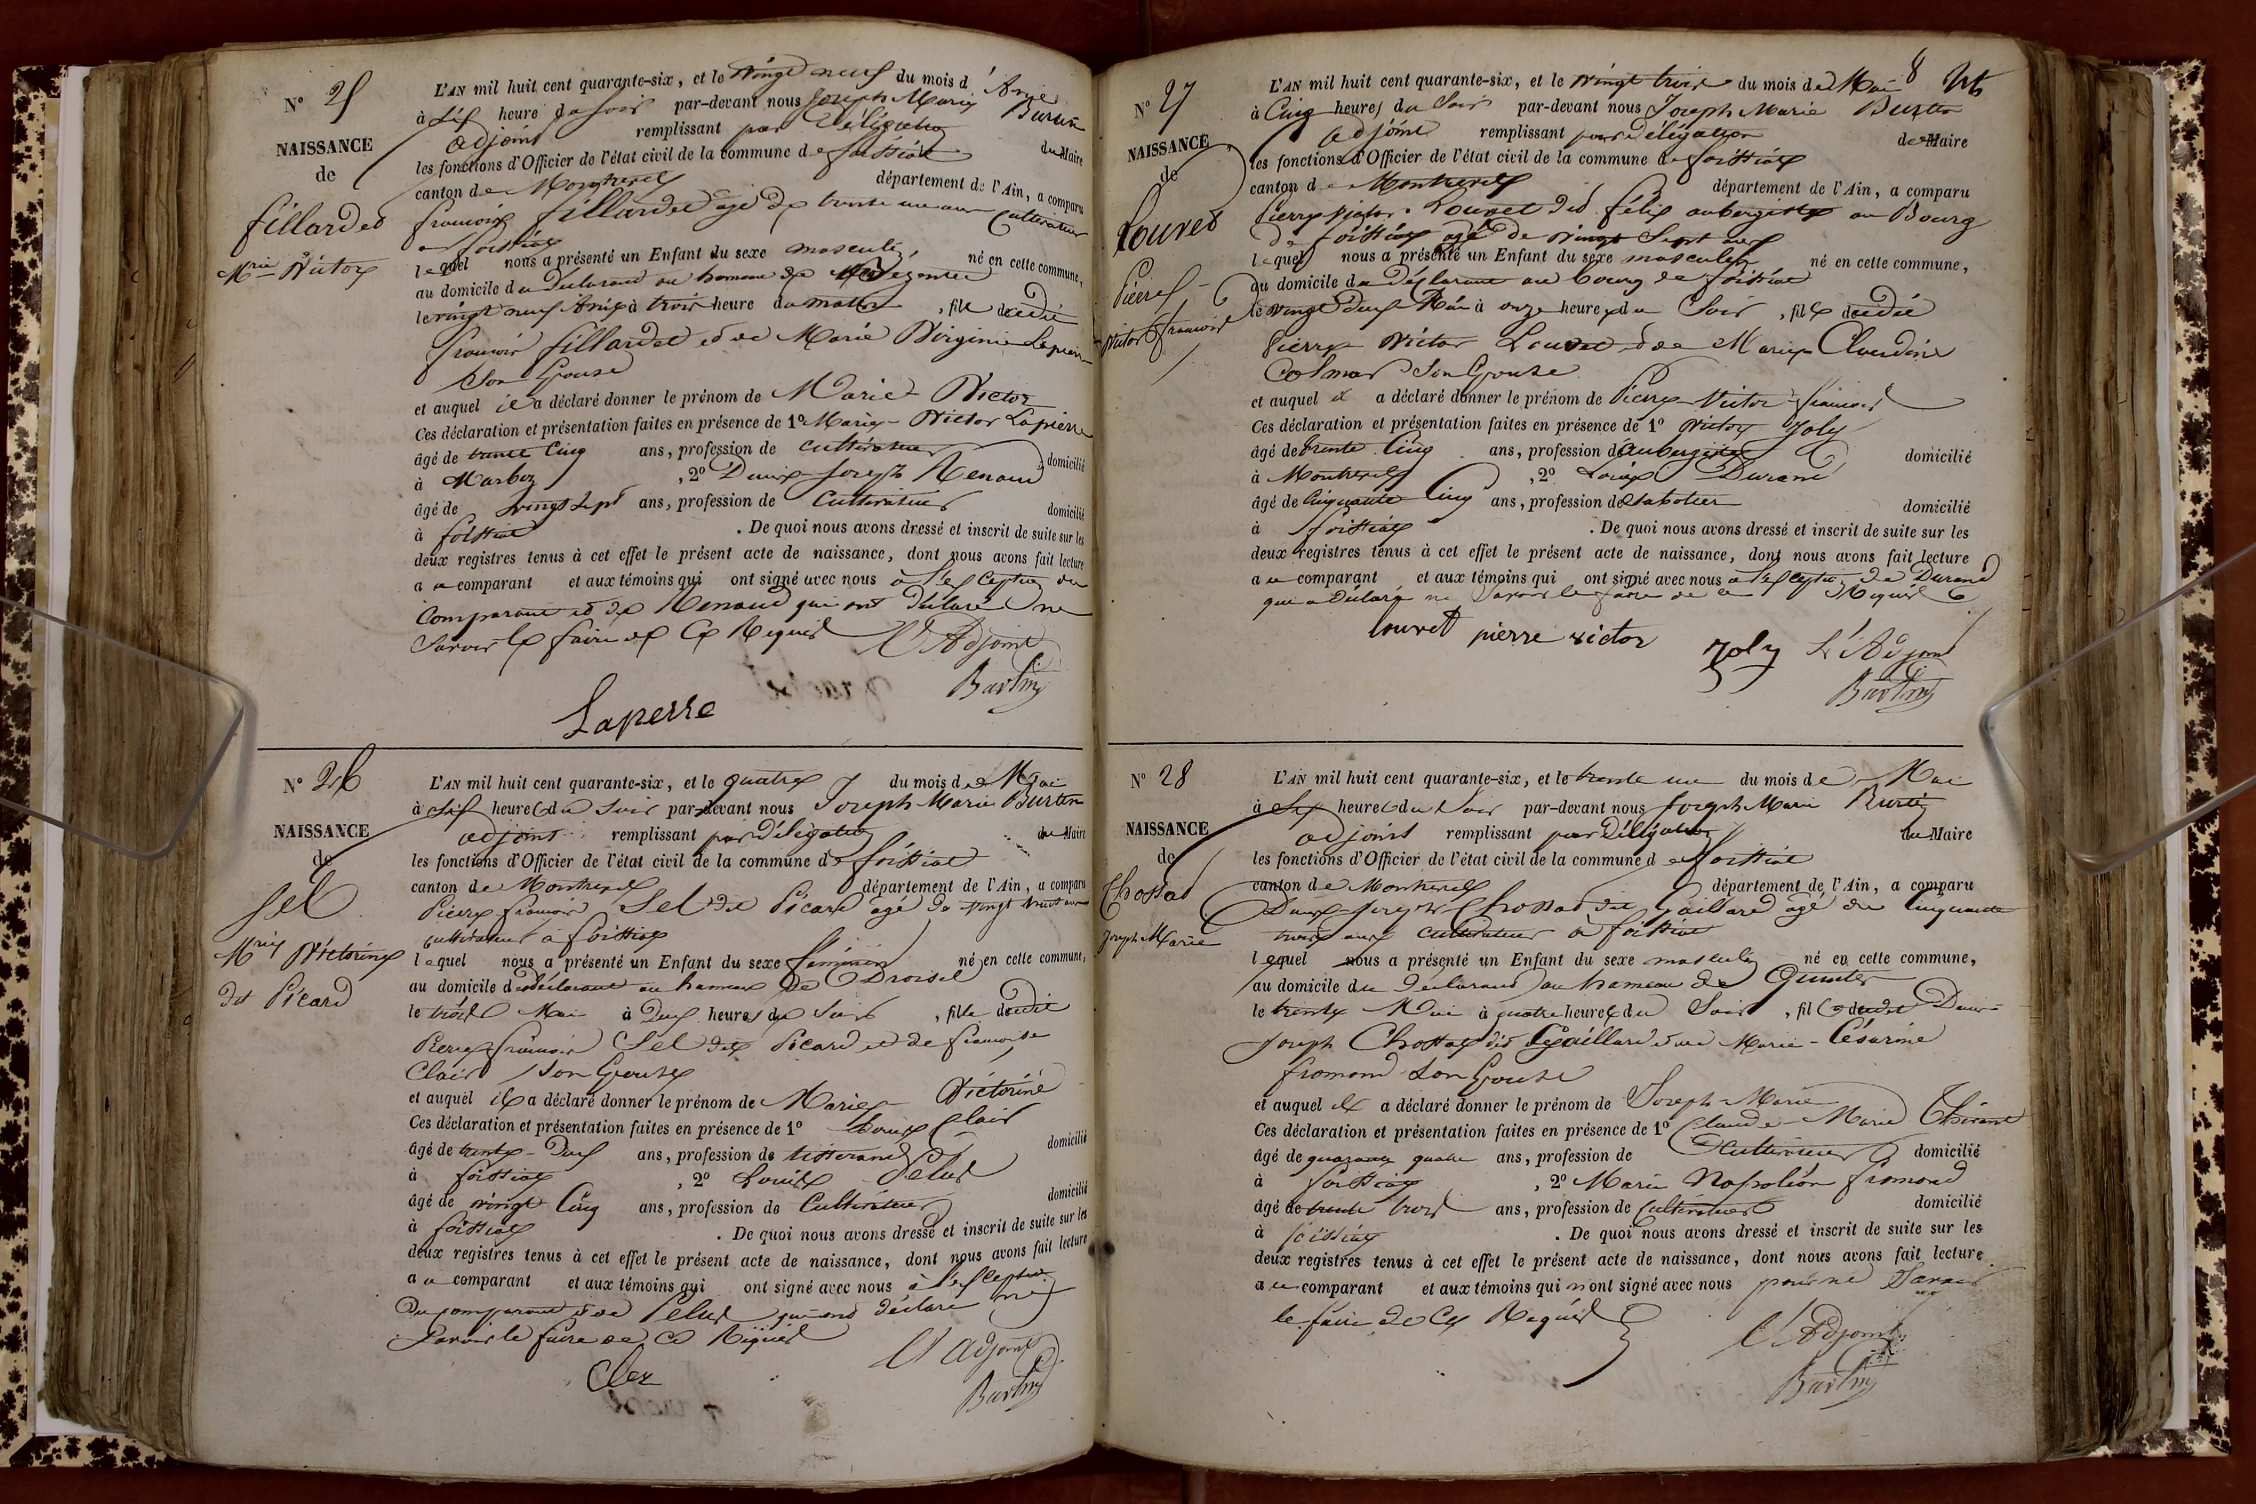 N° 25
NAISSANCE
de
fillardet
Mrie Victor
L'AN mil huit cent quarante-six, et le vingt neuf du mois d'Avril
à six heure du soir par-devant nous Joseph Marie Burtin
adjoint remplissant par délégation du Maire
les fonctions d'Officier de l'état civil de la commune de foissiat
canton de Montrevel département de l'Ain, a comparu
françois fillardet agé de trente un ans Cultivateur
à foissiat
lequel nous a présenté un Enfant du sexe masculin, né en cette commune,
au domicile du déclarant au hameau de
le vingt neuf Avril à trois heure du matin, fils dudit
françois fillardet et de Marie Virginie Lapierre
Son Epouse
et auquel il a déclaré donner le prénom de Marie Victor
Ces déclaration et présentation faites en présence de 1° Marie Victor Lapierre
âgé de trente Cinq ans, profession de cultivateur domicilié
à Marboz, 2° Denis Joseph Renaud
âgé de vingt Sept ans, profession de Cultivateur domicilié
à foissiat. De quoi nous avons dressé et inscrit de suite sur les
deux registres tenus à cet effet le présent acte de naissance, dont nous avons fait lecture
au comparant et aux témoins qui ont signé avec nous à l'exception du
Comparant et de Renaud qui ont déclaré ne
Savoir le faire de ce Requis L'Adjoint
Burtin
Lapierre
N° 26
NAISSANCE
de
Sel
Mrie Victorine
dit Picard
L'AN mil huit cent quarante-six, et le quatre du mois de Mai
à six heure du soir par-devant nous Joseph Marie Burtin
adjoint remplissant par délégation du Maire
les fonctions d'Officier de l'état civil de la commune de foissiat
canton de Montrevel département de l'Ain, a comparu
Pierre françois Sel dit Picard agé de vingt huit ans
cultivateur à foissiat
lequel nous a présenté un Enfant du sexe féminin né en cette commune,
au domicile du déclarant au hameau de Droisel
le trois Mai à Deux heures du Soir, fille dudit
Pierre françois Sel dit Picard et de françoise
Clair Son Epouse
et auquel il a déclaré donner le prénom de Marie Victorine
Ces déclaration et présentation faites en présence de 1° Louis Clair
âgé de trente Deux ans, profession de tisserand domicilié
à foissiat, 2° Louis Pelus
âgé de vingt Cinq ans, profession de Cultivateur domicilié
à foissiat. De quoi nous avons dressé et inscrit de suite sur les
deux registres tenus à cet effet le présent acte de naissance, dont nous avons fait lecture
au comparant et aux témoins qui ont signé avec nous à l'exception
Du comparant et de Pelus qui ont déclaré ne
Savoir le faire de ce Requis
L'adjoint
Burtin
8
N° 27
NAISSANCE
de
Louvet
Pierre
Victor françois
L'AN mil huit cent quarante-six, et le vingt trois du mois de Mai
à Cinq heures du Soir par-devant nous Joseph Marie Burtin
adjoint remplissant par délégation du Maire
les fonctions d'Officier de l'état civil de la commune de foissiat
canton de Montrevel département de l'Ain, a comparu
Pierre Victor Louvet dit félix aubergiste au Bourg
de foissiat agé de vingt Sept ans
lequel nous a présenté un Enfant du sexe masculin né en cette commune,
au domicile du déclarant au bourg de foissiat
le vingt deux Mai à onze heures du Soir, fils dudit
Pierre Victor Louvet et de Marie Claudine
Colmar Son Epouse
et auquel il a déclaré donner le prénom de Pierre Victor françois
Ces déclaration et présentation faites en présence de 1° Victor Joly
âgé de trente Cinq ans, profession d'aubergiste domicilié
à Montrevel, 2° Louis Durand
âgé de Cinquante Cinq ans, profession de Sabotier domicilié
à foissiat. De quoi nous avons dressé et inscrit de suite sur les
deux registres tenus à cet effet le présent acte de naissance, dont nous avons fait lecture
au comparant et aux témoins qui ont signé avec nous à l'exception de Durand
qui a déclaré ne Savoir le faire de ce Requis
louvet pierre victor Joly L'Adjoint
Burtin
N° 28
NAISSANCE
de
Chossat
Joseph Marie
L'AN mil huit cent quarante-six, et le trente un du mois de Mai
à Six heure du Soir par-devant nous Joseph Marie Burtin
adjoint remplissant par délégation du Maire
les fonctions d'Officier de l'état civil de la commune de foissiat
canton de Montrevel département de l'Ain, a comparu
Denis Joseph Chossat dit Gaillard agé de Cinquante
trois ans cultivateur à foissiat
lequel nous a présenté un Enfant du sexe masculin né en cette commune,
au domicile du déclarant au hameau de
le trente Mai à quatre heures du Soir, fils dudit Denis
Joseph Chossat dit Gaillard et de Marie Césarine
fromond Son Epouse
et auquel il a déclaré donner le prénom de Joseph Marie
Ces déclaration et présentation faites en présence de 1° Claude Marie
âgé de quarante quatre ans, profession de Cultivateur domicilié
à foissiat, 2° Marie Napoléon fromond
âgé de trente trois ans, profession de Cultivateur domicilié
à foissiat. De quoi nous avons dressé et inscrit de suite sur les
deux registres tenus à cet effet le présent acte de naissance, dont nous avons fait lecture
au comparant et aux témoins qui n'ont signé avec nous pour ne Savoir
le faire de ce Requis
L'Adjoint
Burtin